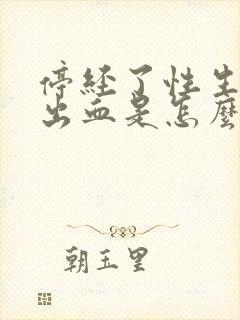 停经了性生
出血是怎麼
朝玉里